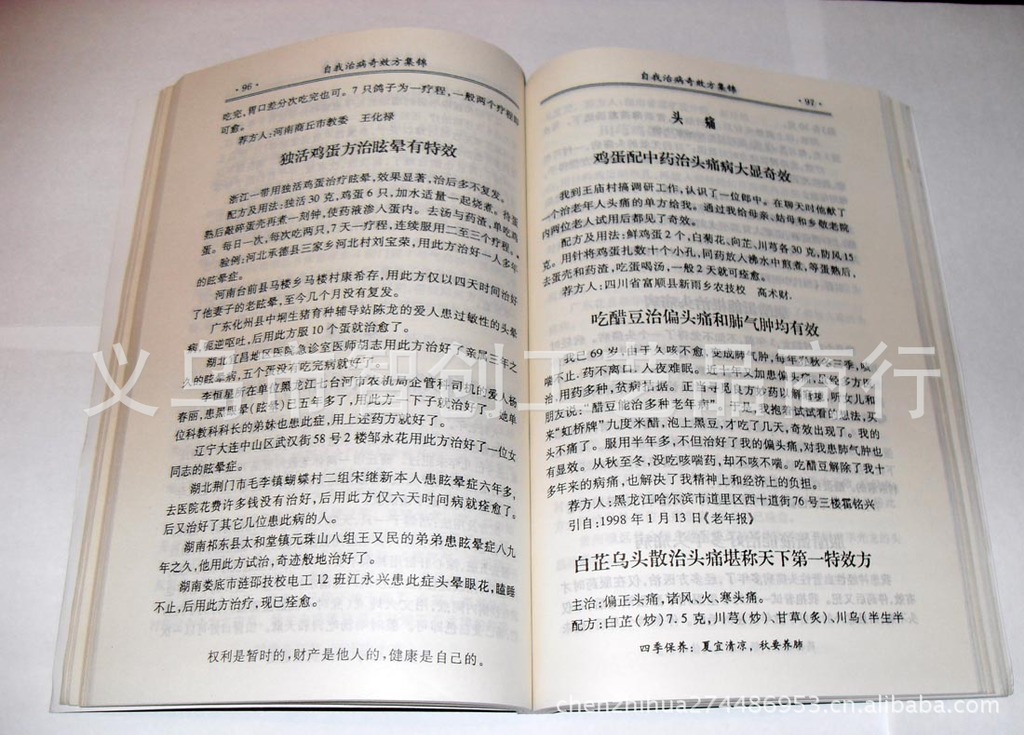 ·96·
自我治病奇效方集锦
吃完,胃口差分次吃完也可。7只鸽子为一疗程,一般两个疗程即
可愈。
荐方人:河南商丘市教委 王化禄
独活鸡蛋方治眩晕有特效
浙江一带用独活鸡蛋治疗眩晕,效果显著,治后多不复发。
配方及用法:独活30克,鸡蛋6只,加水适量一起烧煮。待蛋
熟后敲碎蛋壳再煮一刻钟,使药液渗入蛋内。去汤与药渣,单吃鸡
蛋。每日一次,每次吃两只,7天一疗程,连续服用二至三个疗程。
验例:河北承德县三家乡河北村刘宝荣,用此方治好一人多年
的眩晕症。
河南台前县马楼乡马楼村康希存,用此方仅以四天时间治好
了他妻子的老眩晕,至今几个月没有复发。
广东化州县中垌生猪育种辅导站陈龙的爱人患过敏性的头晕
病,呃逆呕吐,后用此方服10个蛋就治愈了。
湖北宜昌地区医院急诊室医师胡志用此方治好了亲属三年之
久的眩晕病,五个蛋没有吃完病就好了。
李恒星所在单位黑龙江七台河市农机局企管科司机的爱人杨
春丽,患黑眼晕(眩晕)已五年多了,用此方一下子就治好了。她单
位科教科科长的弟妹也患此症,用上述药方就好了。
辽宁大连中山区武汉街58号2楼邹永花用此方治好了一位女
同志的眩晕症。
湖北荆门市毛李镇蝴蝶村二组宋继新本人患眩晕症六年多,
去医院花费许多钱没有治好,后用此方仅六天时间病就痊愈了。
后又治好了其它几位患此病的人。
湖南祁东县太和堂镇元珠山八组王又民的弟弟患眩晕症八九
年之久,他用此方试治,奇迹般地治好了。
湖南娄底市涟邵技校电工12班江永兴患此症头晕眼花,瞌睡
不止,后用此方治疗,现已痊愈。
权利是暂时的,财产是他人的,健康是自己的。
自我治病奇效方集锦
·97·
头 痛
鸡蛋配中药治头痛病大显奇效
我到王庙村搞调研工作,认识了一位郎中。在聊天时他献了
一个治老年人头痛的单方给我。通过我给母亲、姑母和乡敬老院
内两位老人试用后都见了奇效。
配方及用法:鲜鸡蛋2个,白菊花、向芷、川芎各30克,防风15
克。用针将鸡蛋扎数十个小孔,同药放入沸水中煎煮,等蛋熟后,
去蛋壳和药渣,吃蛋喝汤,一般2天就可痊愈。
荐方人:四川省富顺县新雨乡农技校 高术财
吃醋豆治偏头痛和肺气肿均有效
我已69岁,由于久咳不愈,变成肺气肿,每年到秋冬三季,咳
喘不止,药不离口,人夜难眠。近十年又加患偏头痛,虽经多方医
治,用药多种,贫病拮据。正当寻觅良方妙药以解难时,听女儿和
朋友说:“醋豆能治多种老年病”,于是,我抱着试试看的想法,买
来“虹桥牌”九度米醋,泡上黑豆,才吃了几天,奇效出现了。我的
头不痛了。服用半年多,不但治好了我的偏头痛,对我患肺气肿也
有显效。从秋至冬,没吃咳喘药,却不咳不喘。吃醋豆解除了我十
多年来的病痛,也解决了我精神上和经济上的负担。
荐方人:黑龙江哈尔滨市道里区西十道街76号三楼霍铭兴
引自:1998年1月13日《老年报》
白芷乌头散治头痛堪称天下第一特效方
主治:偏正头痛,诸风、火、寒头痛。
配方:白芷(炒)7.5克,川芎(炒)、甘草(炙)、川乌(半生半
四季保养:夏宜清凉,秋要养肺
chenzhihua274486953.cn.alibaba.com